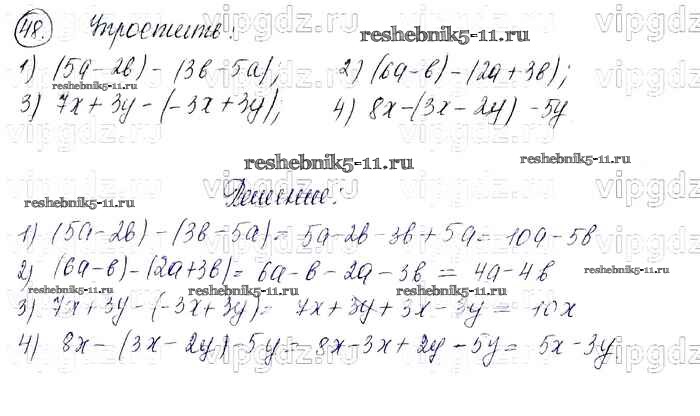 48. Упростить:
1) (5a-2в)-(3в-5a); 2) (6a-в)-(2a+3в);
3) 7x+3y-(-3x+3y); 4) 8x-(3x-2y)-5y
Решение:
1) (5a-2в)-(3в-5a)=5a-2в-3в+5a=10a-5в
2) (6a-в)-(2a+3в)=6a-в-2a-3в=4a-4в
3) 7x+3y-(-3x+3y)=7x+3y+3x-3y=10x
4) 8x-(3x-2y)-5y=8x-3x+2y-5y=5x-3y
reshebnik5-11.ru
reshebnik5-11.ru
reshebnik5-11.ru
reshebnik5-11.ru
reshebnik5-11.ru
reshebnik5-11.ru
reshebnik5-11.ru
reshebnik5-11.ru
vipgdz.ru